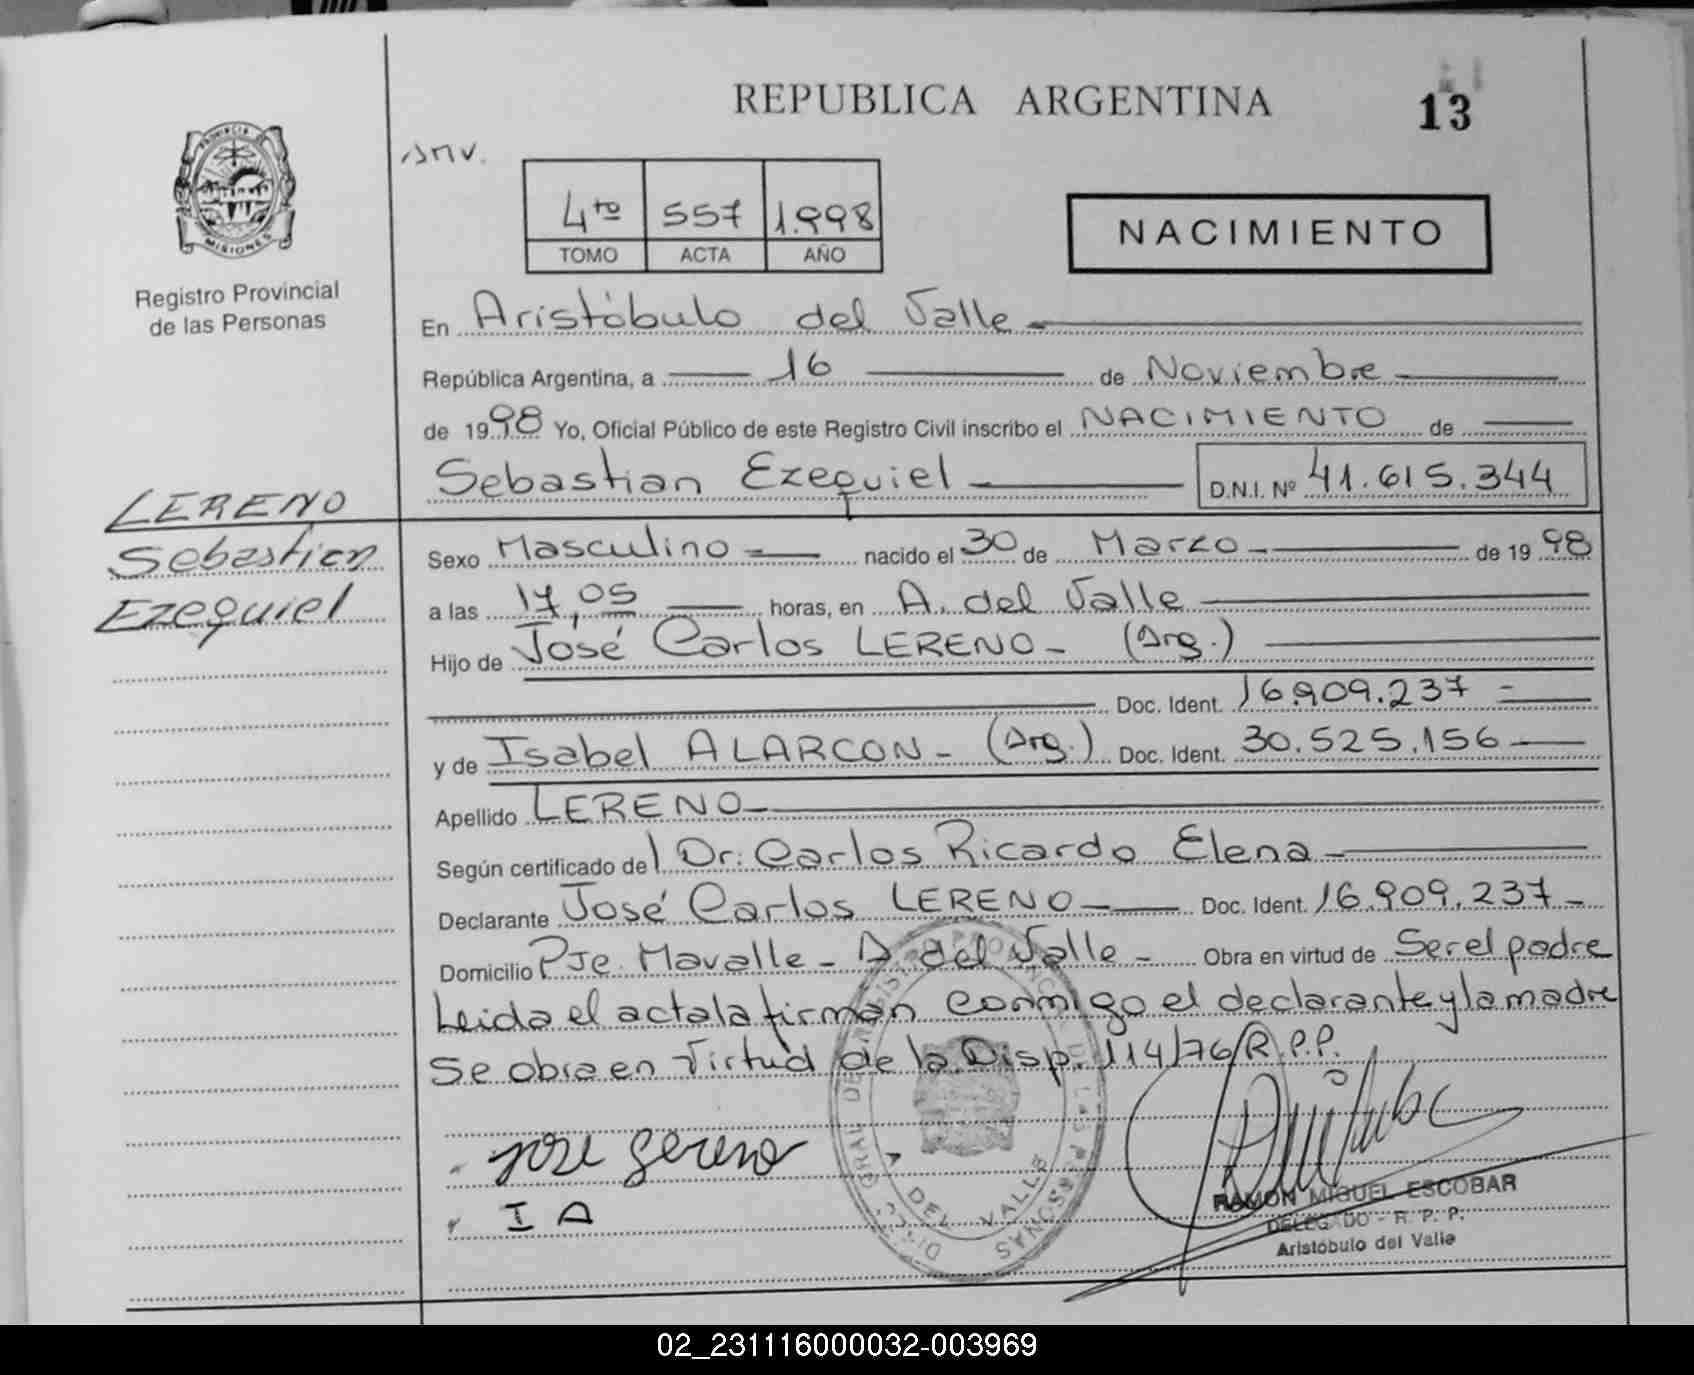 REPUBLICA ARGENTINA
13
PROVINCIA DE
MISIONES
Registro Provincial
de las Personas
4to 557 1.998
TOMO ACTA AÑO
NACIMIENTO
En Aristóbulo del Valle
República Argentina, a 16 de Noviembre
de 1998 Yo, Oficial Público de este Registro Civil inscribo el NACIMIENTO de
Sebastian Ezequiel D.N.I. Nº 41.615.344
LERENO
Sebastian
Ezequiel
Sexo Masculino nacido el 30 de Marzo de 1998
a las 17,05 horas, en A. del Valle
Hijo de José Carlos LERENO - (Arg.)
Doc. Ident. 16.909.237
y de Isabel ALARCON - (Arg.) Doc. Ident. 30.525.156
Apellido LERENO
Según certificado del Dr. Carlos Ricardo Elena
Declarante José Carlos LERENO Doc. Ident. 16.909.237
Domicilio Pje. Mavalle - A del Valle - Obra en virtud de Ser el padre
Leida el acta la firman conmigo el declarante y la madre
Se obra en Virtud de la Disp. 114/76/R.P.P.
Jose Lereno
I A
A DEL VALLE
RAMON MIGUEL ESCOBAR
DELEGADO - R. P. P.
Aristóbulo del Valle
02_231116000032-003969